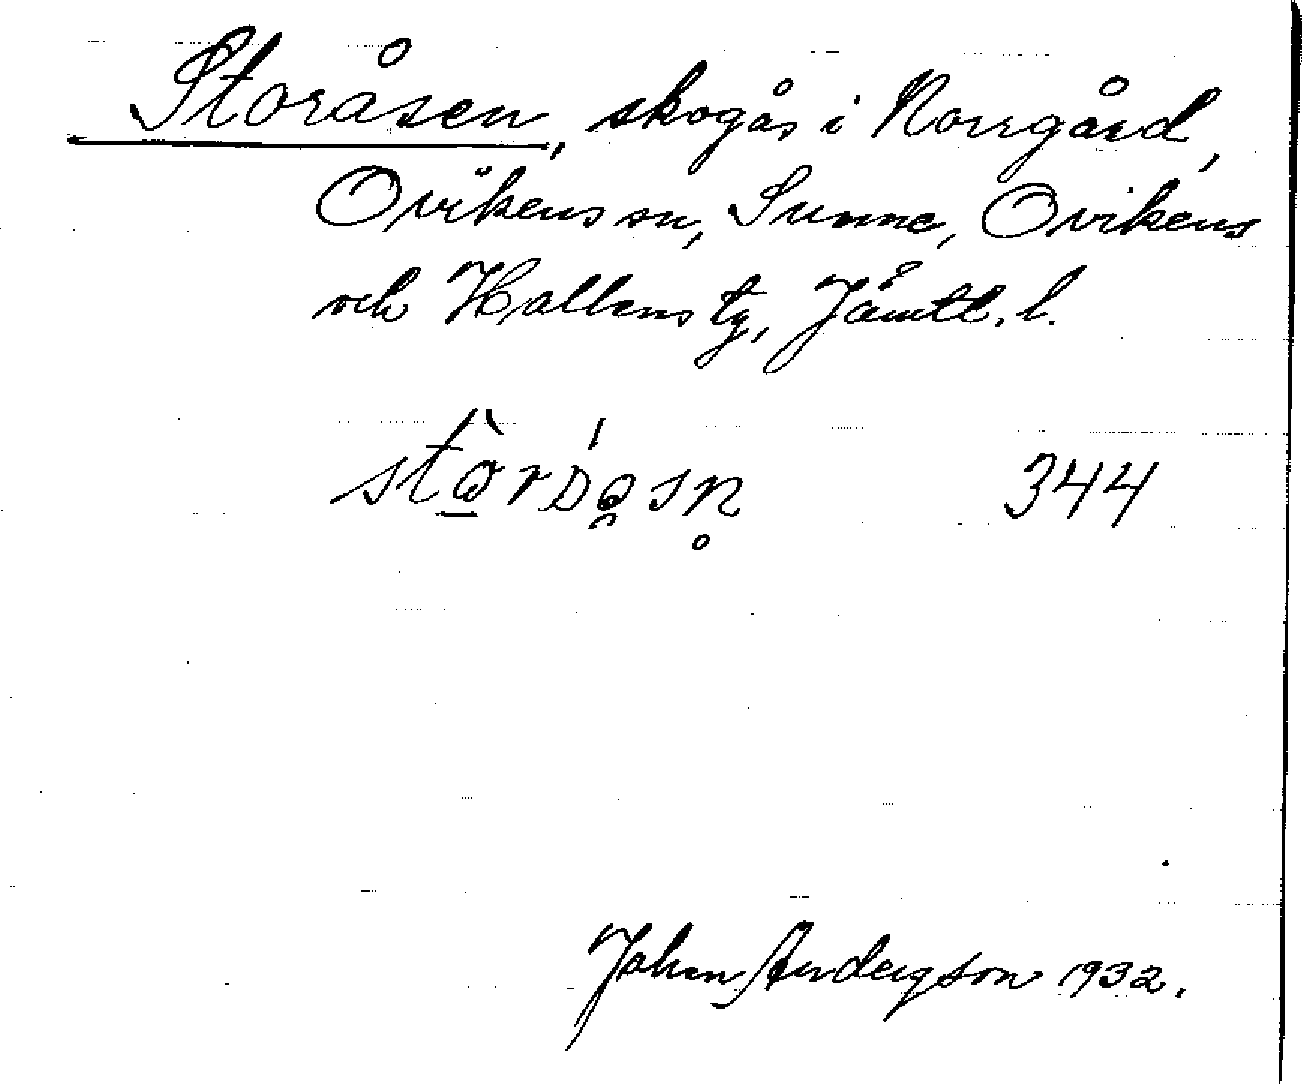 Storåsen, skogås i Norrgård,
Ovikens sn, Sunne, Ovikens
och Hallens tg, Jämtl. l.
344
Johan Anderzson 1932.